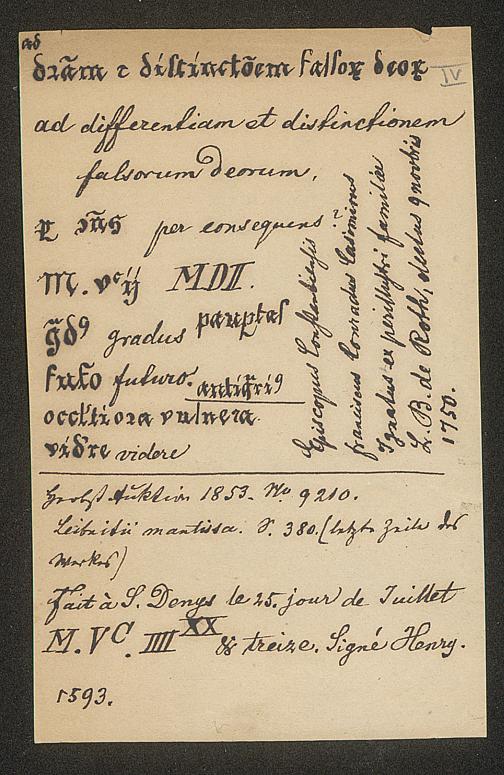 ad
drãm c distinctõem falsoꝝ deoꝝ
IV
ad differentiam et distinctionem
falsorum Deorum.
per consequens?
M. vᶜ ij MDII.
g̃dꝰ gradus
pauptas
futo futuro.
antiq̃riꝰ
occłtiora vulnera
vidre videre
Episcopus Constantiensis
franciscus Conradus Casimirus
Ignatus ex perillustri familiae
L. B. de Roth, electus 9 novbris
1750.
Auktion 1853. No 9210.
Leibnitii mantissa. S. 380. (letzte Zeile des
Werkes)
fait à S. Denys le 25. jour de Juillet
M. Vᶜ. IIIIˣˣ & treize. Signé Henry.
1593.